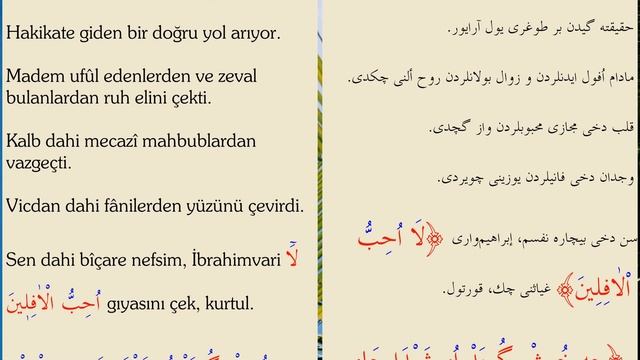 Hakikate giden bir doğru yol arıyor.
Madem ufûl edenlerden ve zeval
bulanlardan ruh elini çekti.
Kalb dahi mecazî mahbublardan
vazgeçti.
Vicdan dahi fânilerden yüzünü çevirdi.
Sen dahi bîçare nefsim, İbrahimvari لَٓا
اُحِبُّ الْاٰفِلٖينَ gıyasını çek, kurtul.
حقيقته گيدن بر طوغری يول آرايور.
مادام اُفول ايدنلردن و زوال بولانلردن روح ألنی چكدی.
قلب دخی مجازی محبوبلردن واز گچدی.
وجدان دخی فانيلردن يوزينی چويردی.
سن دخی بيچاره نفسم، إبراهيم‌واری ﴿لَا اُحِبُّ
الْاٰفِلِينَ﴾ غياثنی چك، قورتول.